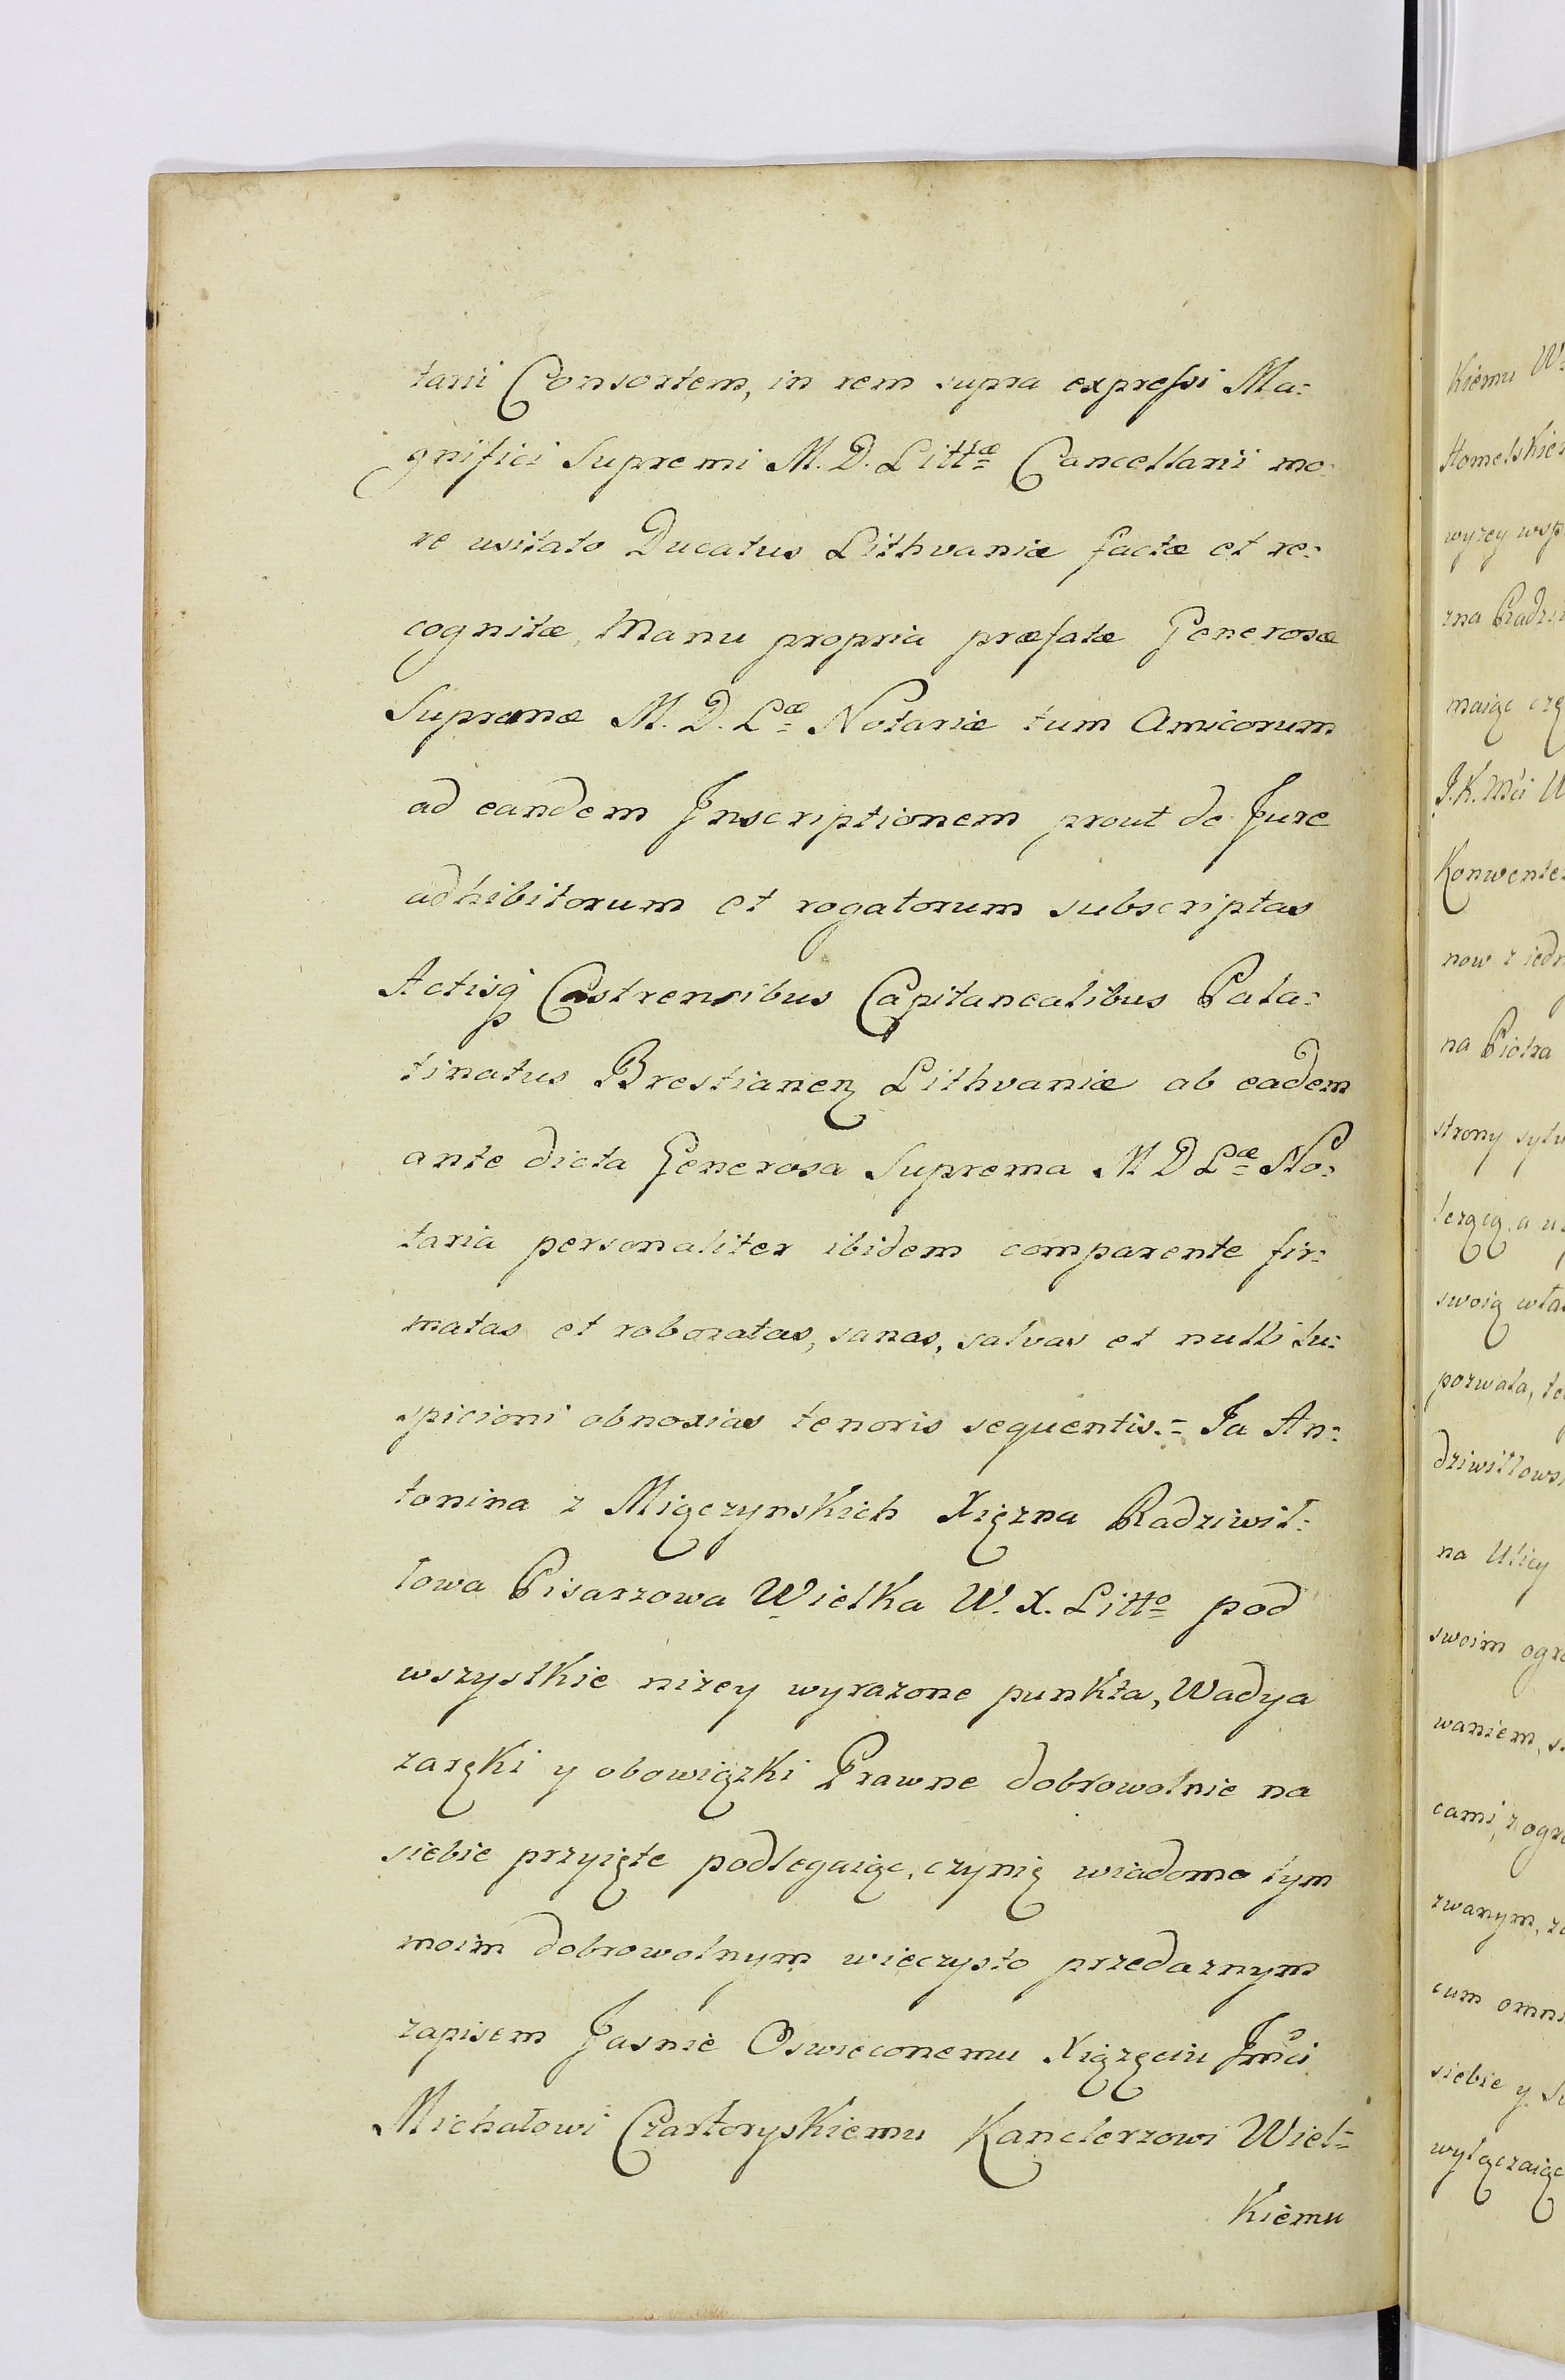 tarii Consortem, in rem supra expressi Ma:
gnifici Supremi M. D. Littæ Cancellarii mo:
re usitato Ducatus Lithvaniæ factæ et re:
cognitæ, Manu propria præfatæ Generosæ
Supremæ M. D. Læ Notariæ tum Amicorum
ad eandem Inscriptionem prout de Jure
adhibitorum et rogatorum subscriptas
Actisq Castrensibus Capitanealibus Pala:
tinatus Brestianen Lithvaniæ ab eadem
ante dicta Generosa Suprema M D Læ No:
taria personaliter ibidem comparente fir:
matas et roboratas, sanas, salvas et nulli su:
spicioni obnoxias tenoris sequentis.= Ja An:
tonina z Miączynskich Xięzna Radziwił:
łowa Pisarzowa Wielka W. X. Litto pod
wszystkie nizey wyrazone punkta, Wadya
zaręki y obowiązki Prawne dobrowolnie na
siebie przyięte podlegaiąc, czynię wiadomo tym
moim dobrowolnym wieczysto przedaznym
zapisem Jasnie Oswieconemu Xiązęciu Jmci
Michałowi Czartoryskiemu Kanclerzowi Wiel=
Kiemu
Kiemu W:
Homelskie
wyzey wsp
zna Radzi
maiąc
J. K. Mci W
Konwente
now z iedn
na Piotra
strony sytu
lezącą, a
swoią wła
pozwala, te
dziwiłłows
na Ulicy
swoim ogro
waniem, s
cami, z ogro
zwanym, za
cum omni
siebie y Su
wyłączaiąc